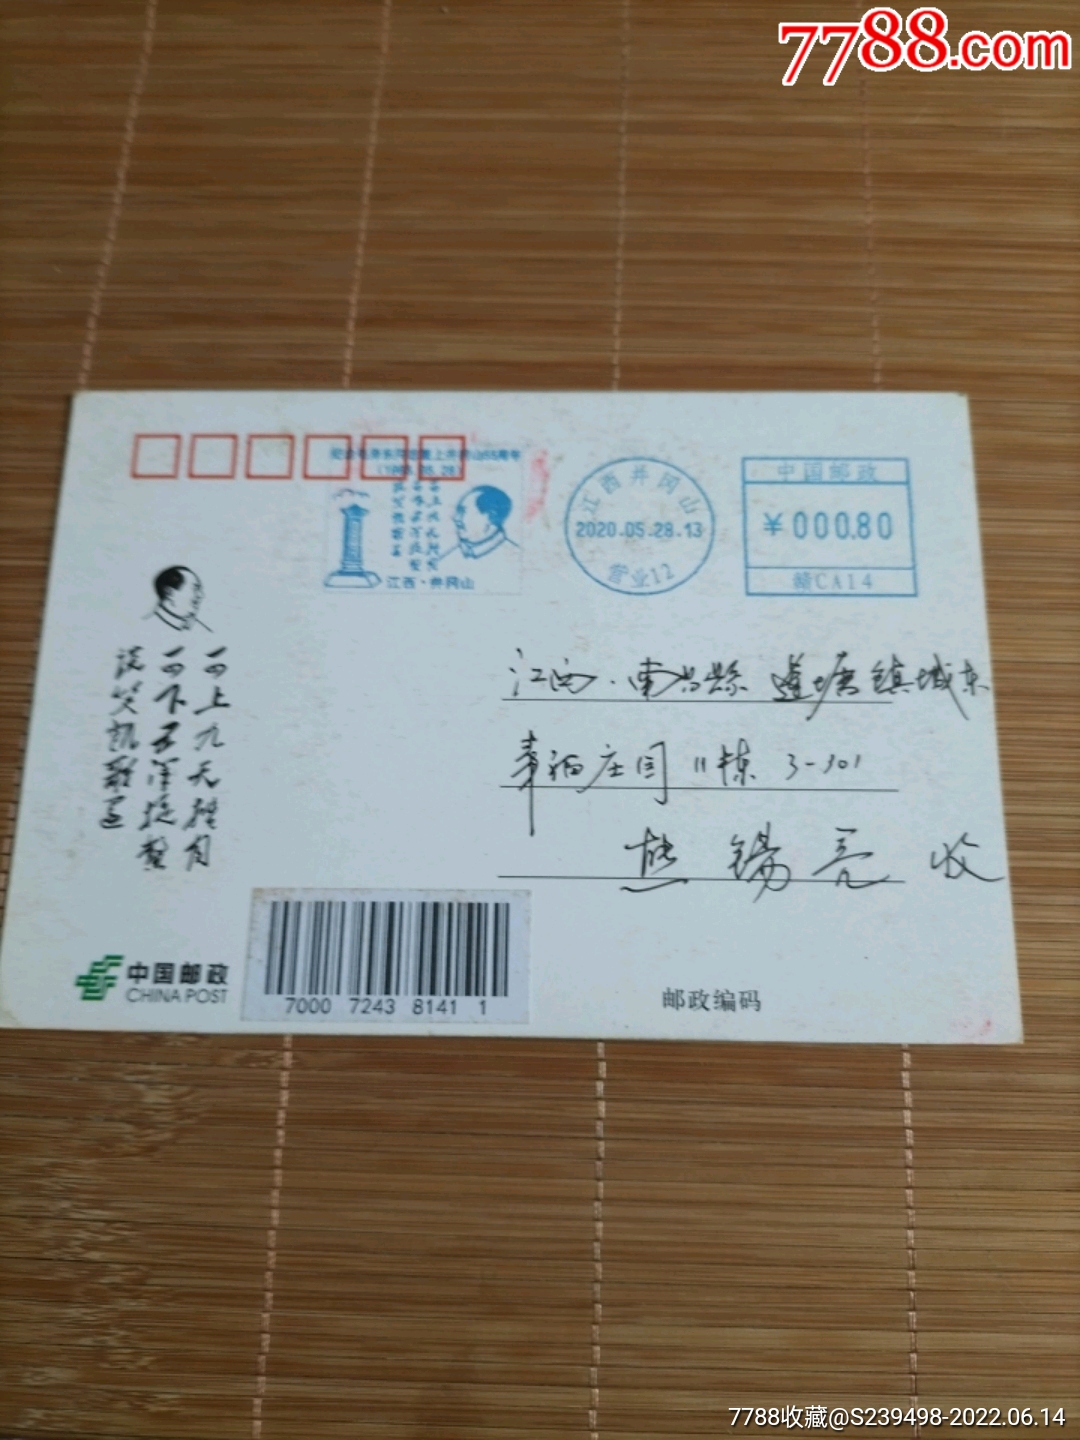 7788.com
纪念毛泽东同志重上井冈山55周年
(1965.05.28)
江西·井冈山
江西井冈山
2020.05.28.13
营业12
中国邮政
¥000.80
赣CA14
可上九天揽月
可下五洋捉鳖
谈笑凯歌还
江西·南昌县 莲塘镇城东
幸福庄园 11栋 3-101
熊锡亮 收
中国邮政
CHINA POST
7000 7243 8141 1
邮政编码
7788收藏@S239498-2022.06.14